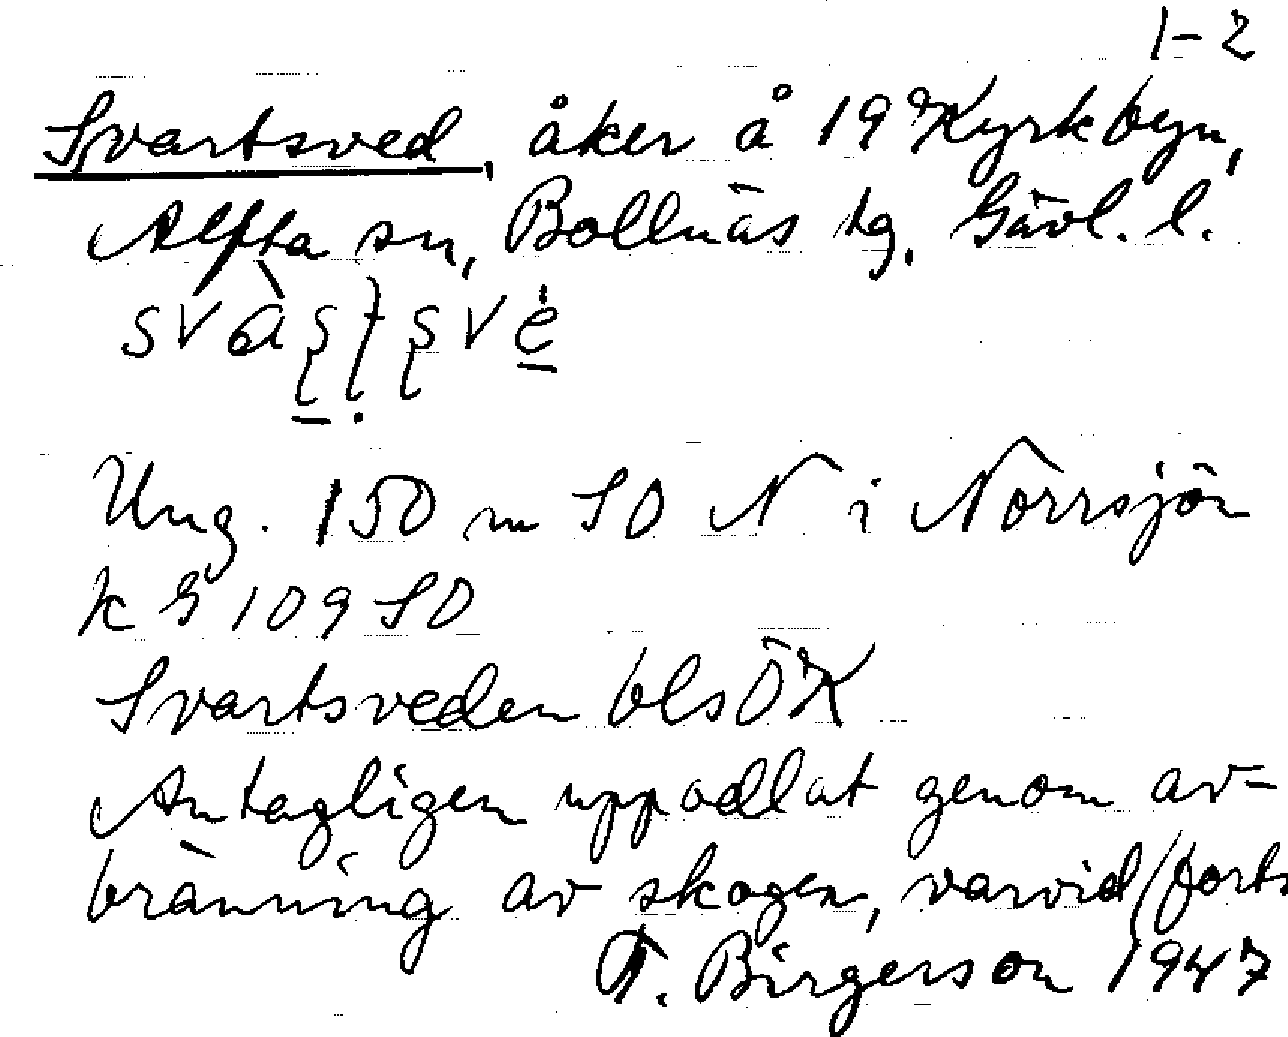 1-2
Svartsved, åker å 19 Kyrkbyn,
Alfta sn, Bollnäs tg. Gävl. l.
Ung. 150 m SO N i Norrsjön
k G 109 SO
Svartsveden bls ÖK
Antagligen uppodlat genom av-
bränning av skogen, varvid (forts
T. Birgerson 1947